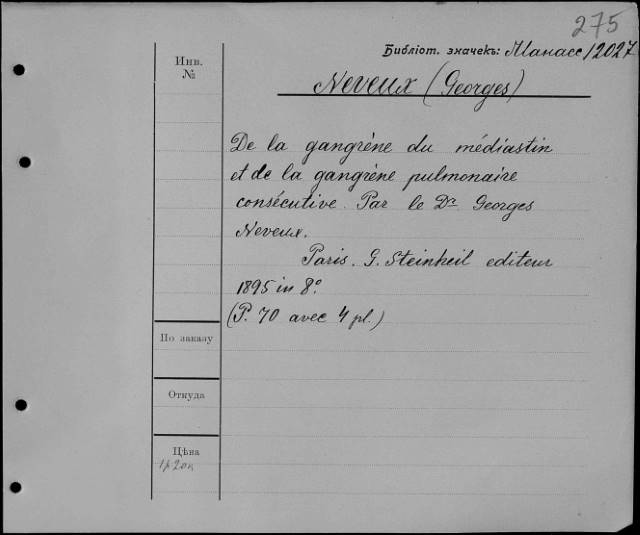 275
Библіот. значекъ: Манасс/2027
Инв.
№
Neveux (Georges)
De la gangrène du médiastin
et de la gangrène pulmonaire
consécutive. Par le Dr. Georges
Neveux.
Paris. G. Steinheil editeur
1895 in 8º
(P. 70 avec 4 pl.)
По заказу
Откуда
Цѣна
1р20к